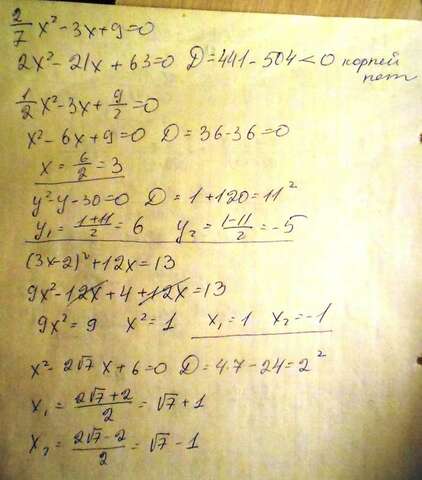 2/7 x² - 3x + 9 = 0
2x² - 21x + 63 = 0 D = 441 - 504 < 0 корней нет
1/2 x² - 3x + 9/2 = 0
x² - 6x + 9 = 0 D = 36 - 36 = 0
x = 6/2 = 3
y² - y - 30 = 0 D = 1 + 120 = 11²
y₁ = (1+11)/2 = 6 y₂ = (1-11)/2 = -5
(3x-2)² + 12x = 13
9x² - 12x + 4 + 12x = 13
9x² = 9 x² = 1 x₁ = 1 x₂ = -1
x² - 2√7 x + 6 = 0 D = 4·7 - 24 = 2²
x₁ = (2√7 + 2)/2 = √7 + 1
x₂ = (2√7 - 2)/2 = √7 - 1